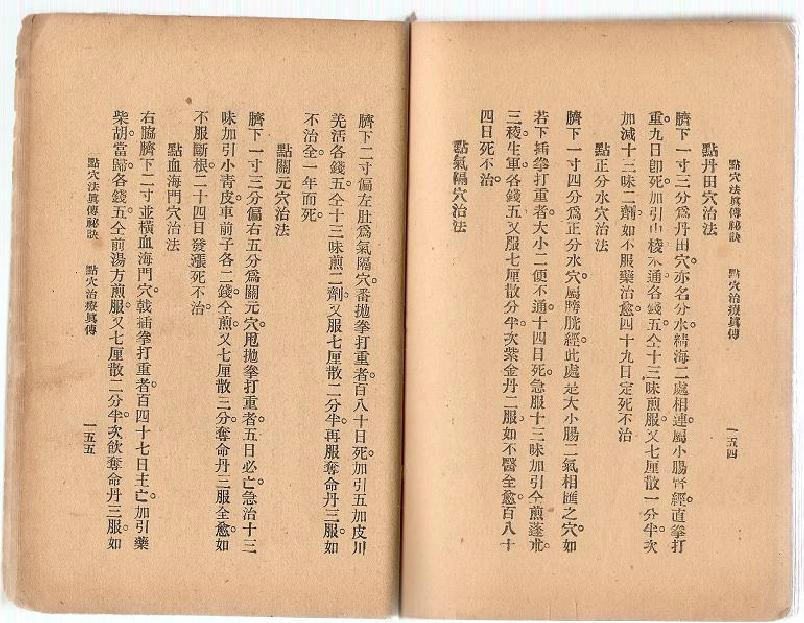 點穴法眞傳祕訣　點穴治療眞傳　一五四
點丹田穴治法
臍下一寸三分爲丹田穴。亦名分水精海二處相連。屬小腸腎經。直拳打
重。九日卽死。加引山棱木通各錢五。仝十三味煎服。又七厘散一分半。次
加減十三味二劑。如不服藥治愈。四十九日定死不治
點正分水穴治法
臍下一寸四分爲正分水穴。屬膀胱經。此處是大小腸二氣相匯之穴。如
若下插拳打重者。大小二便不通。十四日死。急服十三味加引仝煎蓬朮。
三稜。生軍。各錢五。又服七厘散分半。次紫金丹二服。如不醫全愈。百八十
四日死不治。
點氣隔穴治法
臍下二寸偏左肚爲氣隔穴。番拋拳打重者。百八十日死。加引五加皮川
羌活各錢五。仝十三味煎二劑。又服七厘散二分半。再服奪命丹三服。如
不治仝一年而死。
點關元穴治法
臍下一寸三分偏右五分爲關元穴。甩拋拳打重者。五日必亡。急治十三
味加引小靑皮車前子各二錢。仝煎。又七厘散三分。奪命丹三服全愈。如
不服斷根。二十四日發漲死不治。
點血海門穴治法
右脇臍下二寸並橫血海門穴。戟插拳打重者。百四十七日主亡。加引藥
柴胡當歸。各錢五。仝前湯方煎服。又七厘散二分半。次飮奪命丹三服。如
點穴法眞傳祕訣　點穴治療眞傳　一五五